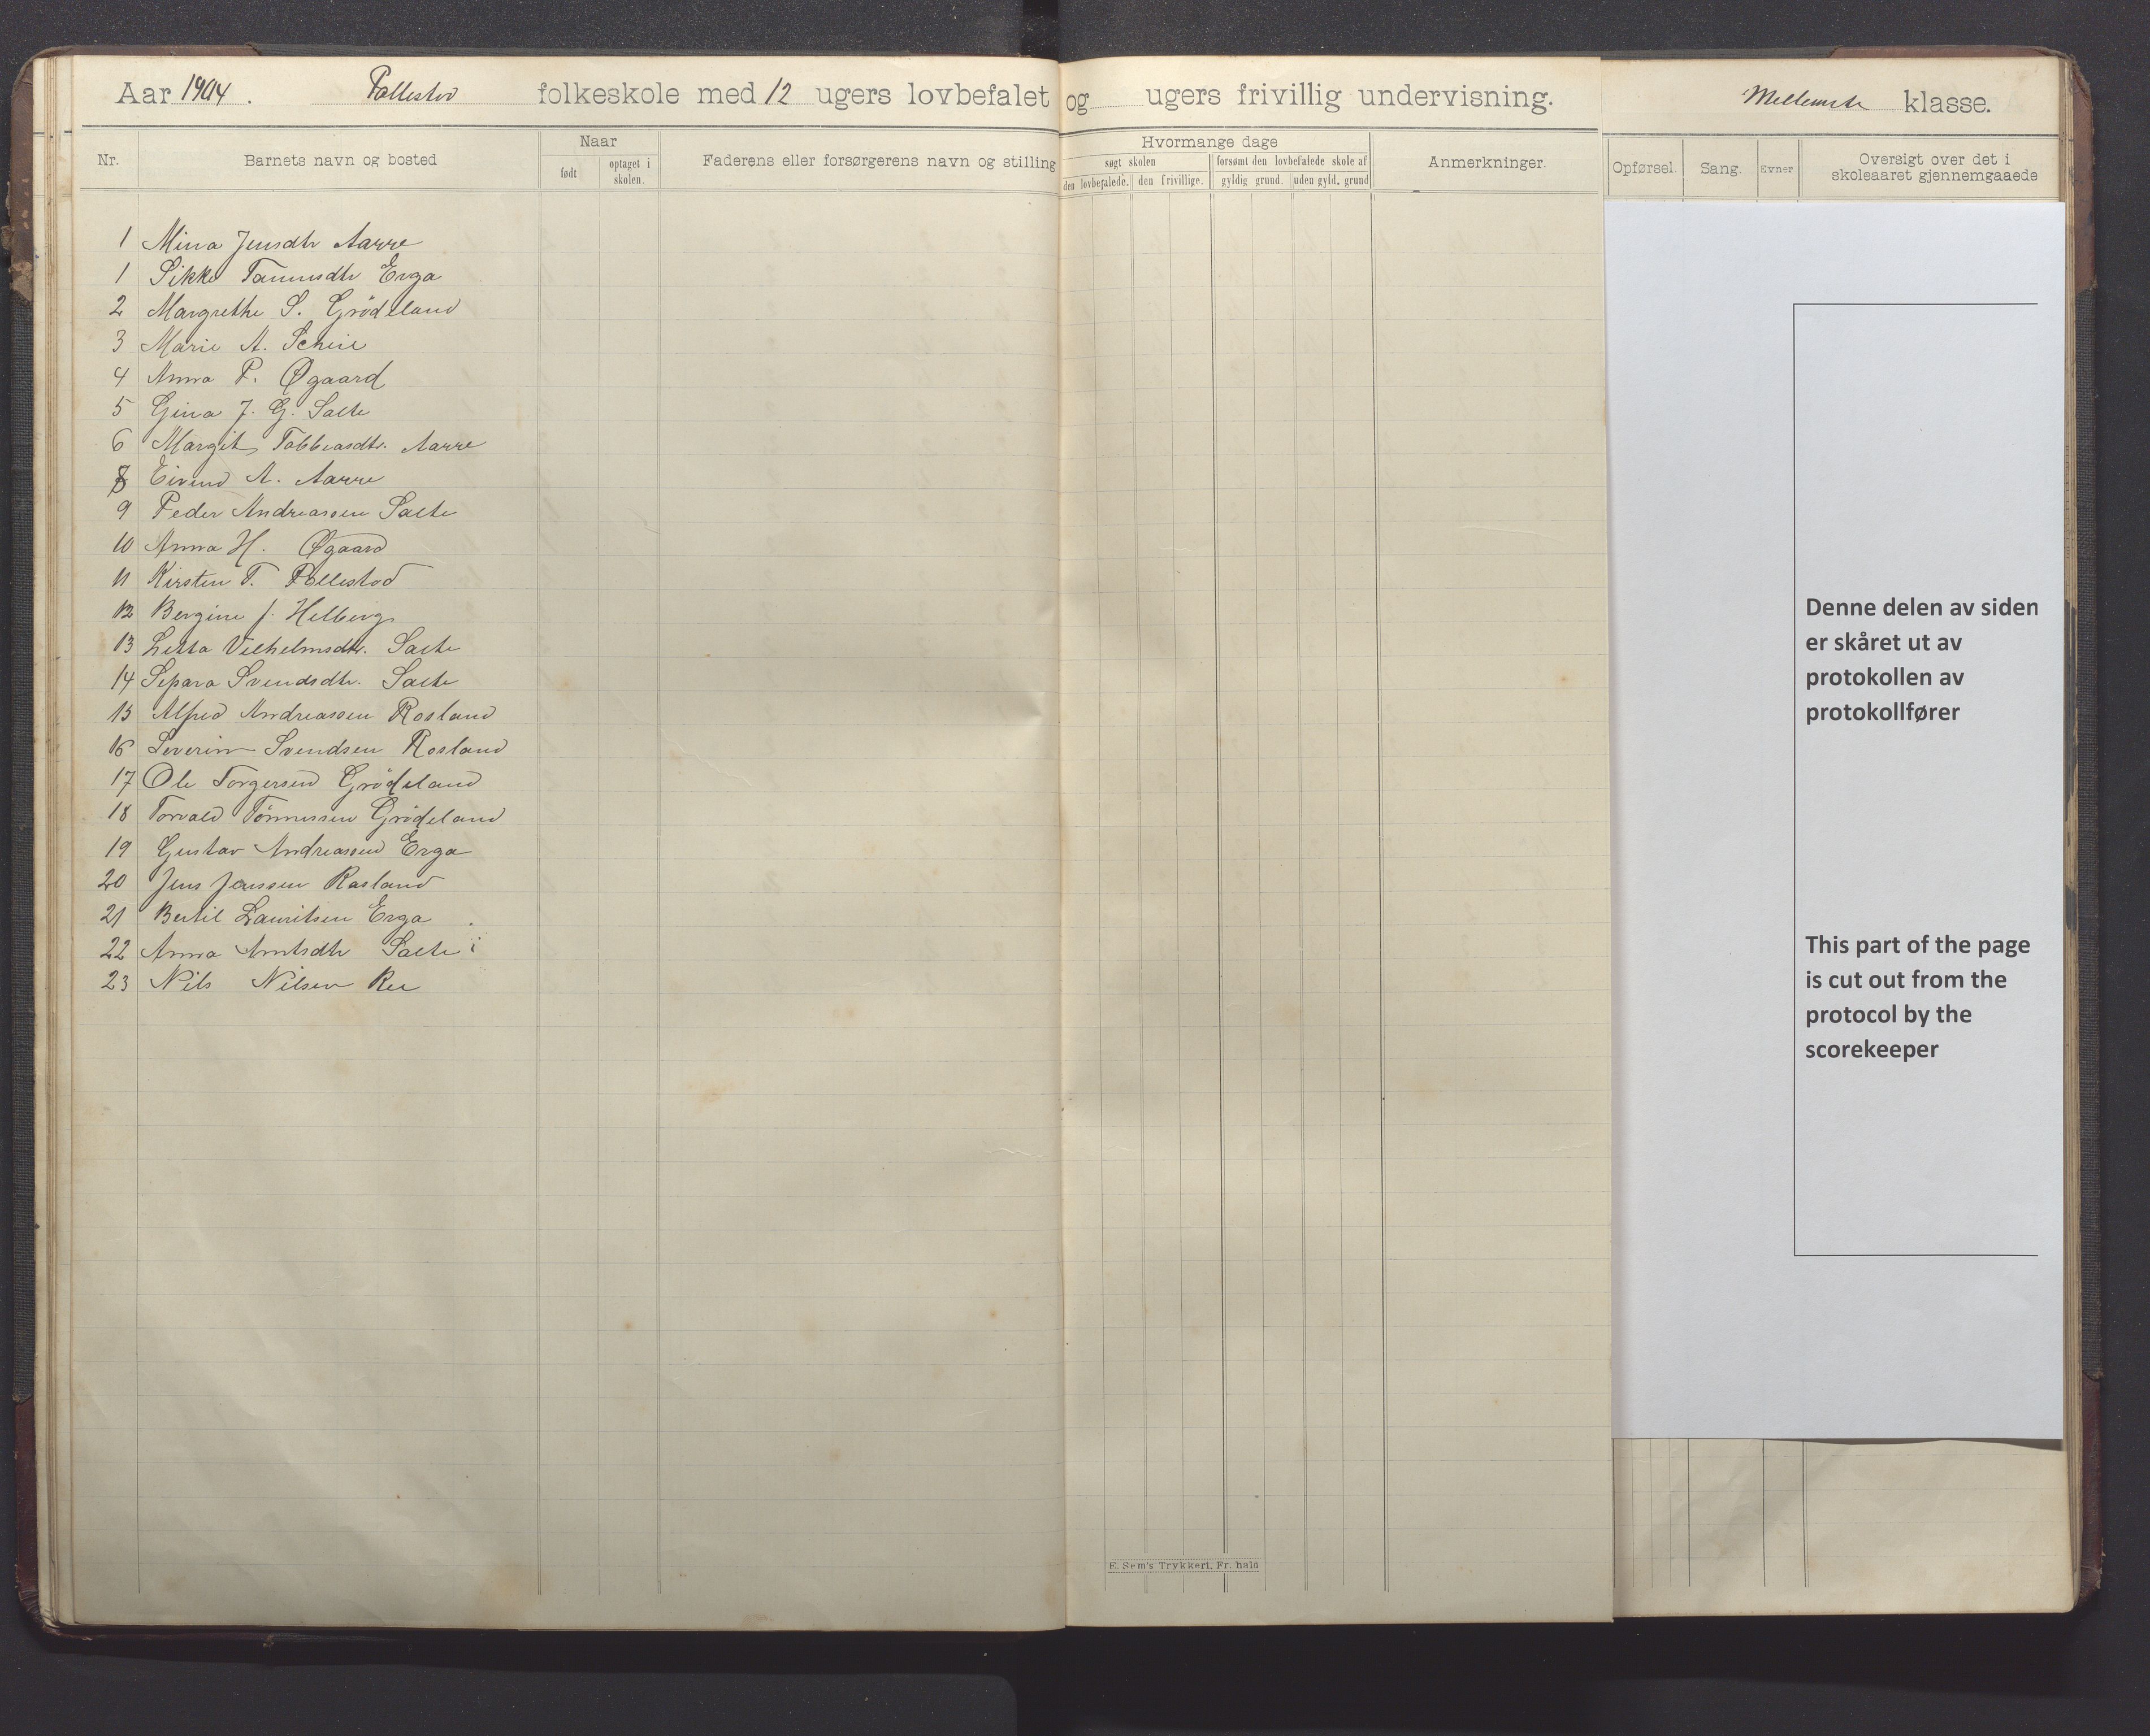 Aar 1904. Pollestad folkeskole med 12 ugers lovbefalet og ugers frivillig undervisning. Mellemste klasse.
Nr. Barnets navn og bosted
Naar
født
optaget i skolen.
Faderens eller forsørgerens navn og stilling
Hvormange dage
søgt skolen
forsømt den lovbefalede skole af
den lovbefalede. den frivillige. gyldig grund. uden gyld. grund
Anmerkninger.
Opførsel. Sang. Evner
Oversigt over det i
skoleaaret gjennemgaaede
1 Mina Jensdtr Aarre
1 Sikke Tønnesdtr Erga
2 Margrethe S. Grödeland
3 Marie A. Scheie
4 Anna P. Øgaard
5 Gina J. G. Salte
6 Margit Tobbiasdtr. Aarre
8 Eivind A. Aarre
9 Peder Andreassen Salte
10 Anna H. Øgaard
11 Kirsten T. Pollestad
12 Bergine J. Helberg
13 Letta Vilhelmsdtr. Salte
14 Separa Svendsdtr. Salte
15 Alfred Andreassen Rosland
16 Severin Svendsen Rosland
17 Ole Torgersen Grödeland
18 Torvald Tönnessen Grödeland
19 Gustav Andreassen Erga
20 Jens Jenssen Rosland
21 Bertil Lauritsen Erga
22 Anna Arntsdtr Salte
23 Nils Nilsen Ree
Denne delen av siden
er skåret ut av
protokollen av
protokollfører
This part of the page
is cut out from the
protocol by the
scorekeeper
E. Sem's Trykkeri, Fr. hald